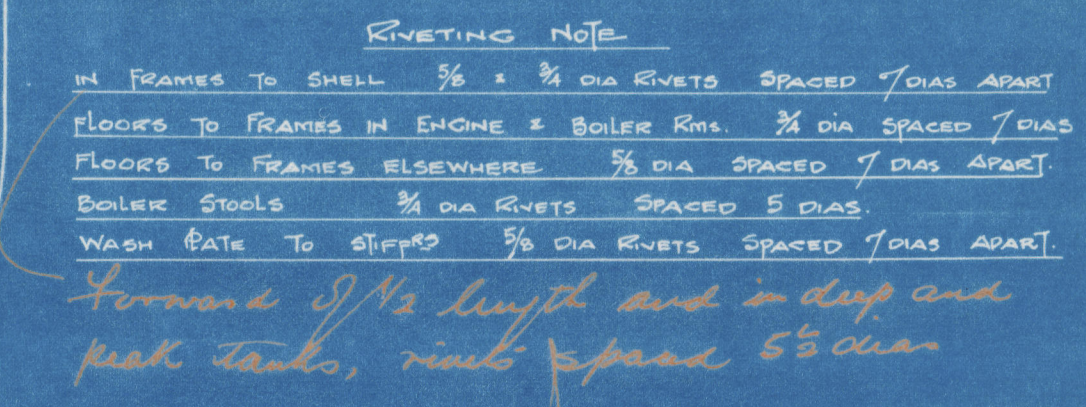 RIVETING NOTE
IN FRAMES TO SHELL 5/8 & 3/4 DIA RIVETS SPACED 7 DIAS APART
FLOORS TO FRAMES IN ENGINE & BOILER RMS. 3/4 DIA SPACED 7 DIAS
FLOORS TO FRAMES ELSEWHERE 5/8 DIA SPACED 7 DIAS APART.
BOILER STOOLS 3/4 DIA RIVETS SPACED 5 DIAS.
WASH PLATE TO STIFFRS 5/8 DIA RIVETS SPACED 7 DIAS APART.
Forward of 1/2 length and in deep and
peak tanks, rivets spaced dias